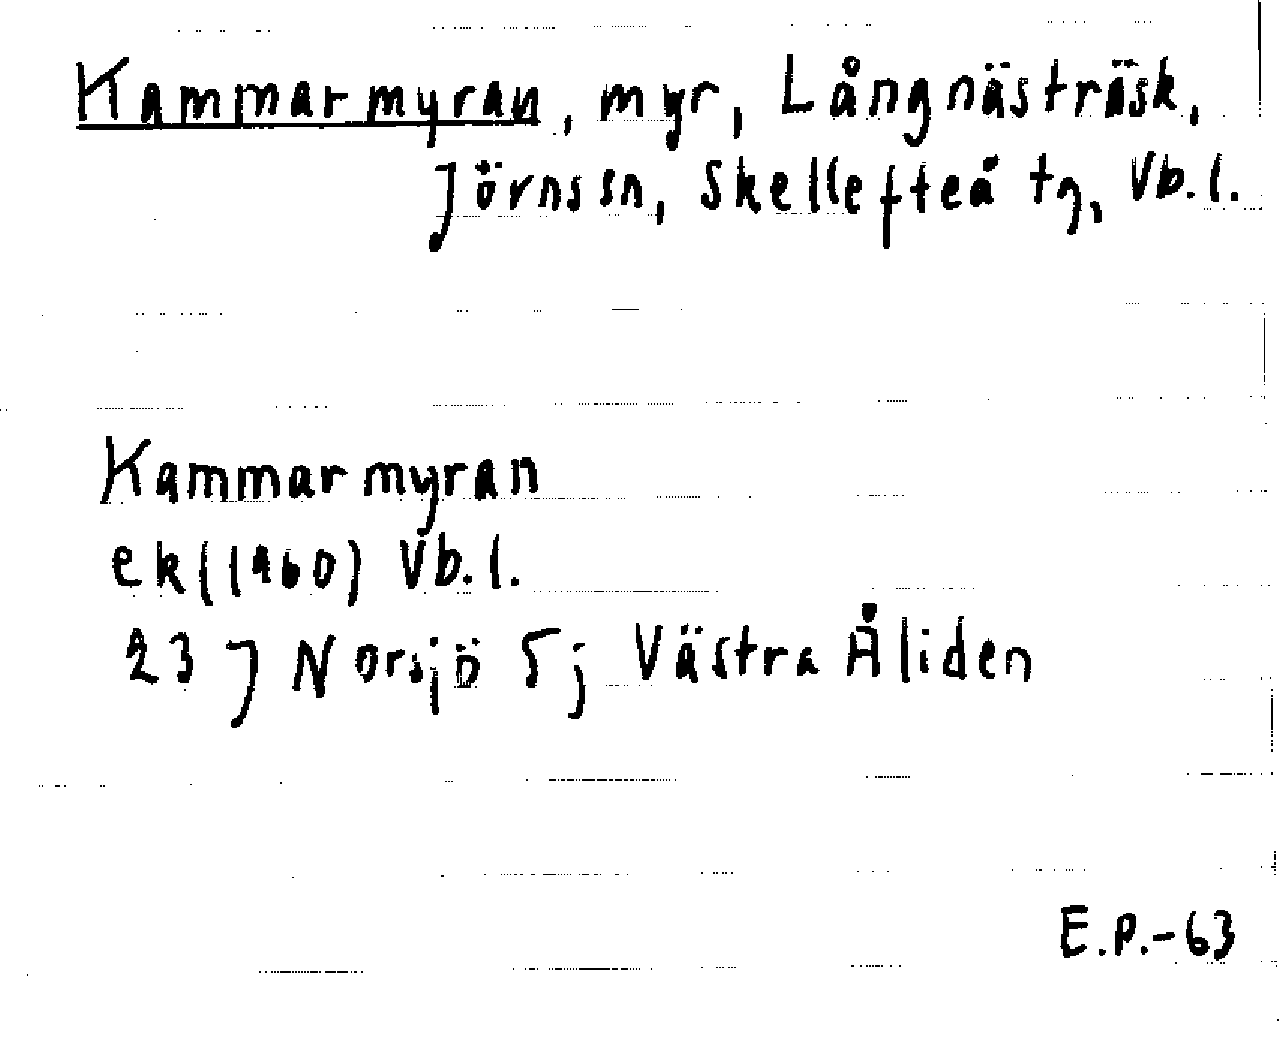 Kammarmyran, myr, Långnästräsk,
Jörns sn, Skellefteå tg, Vb.l.
Kammarmyran
ek (1960) Vb.l.
23 J Norsjö 5j Västra Åliden
E.P.-63